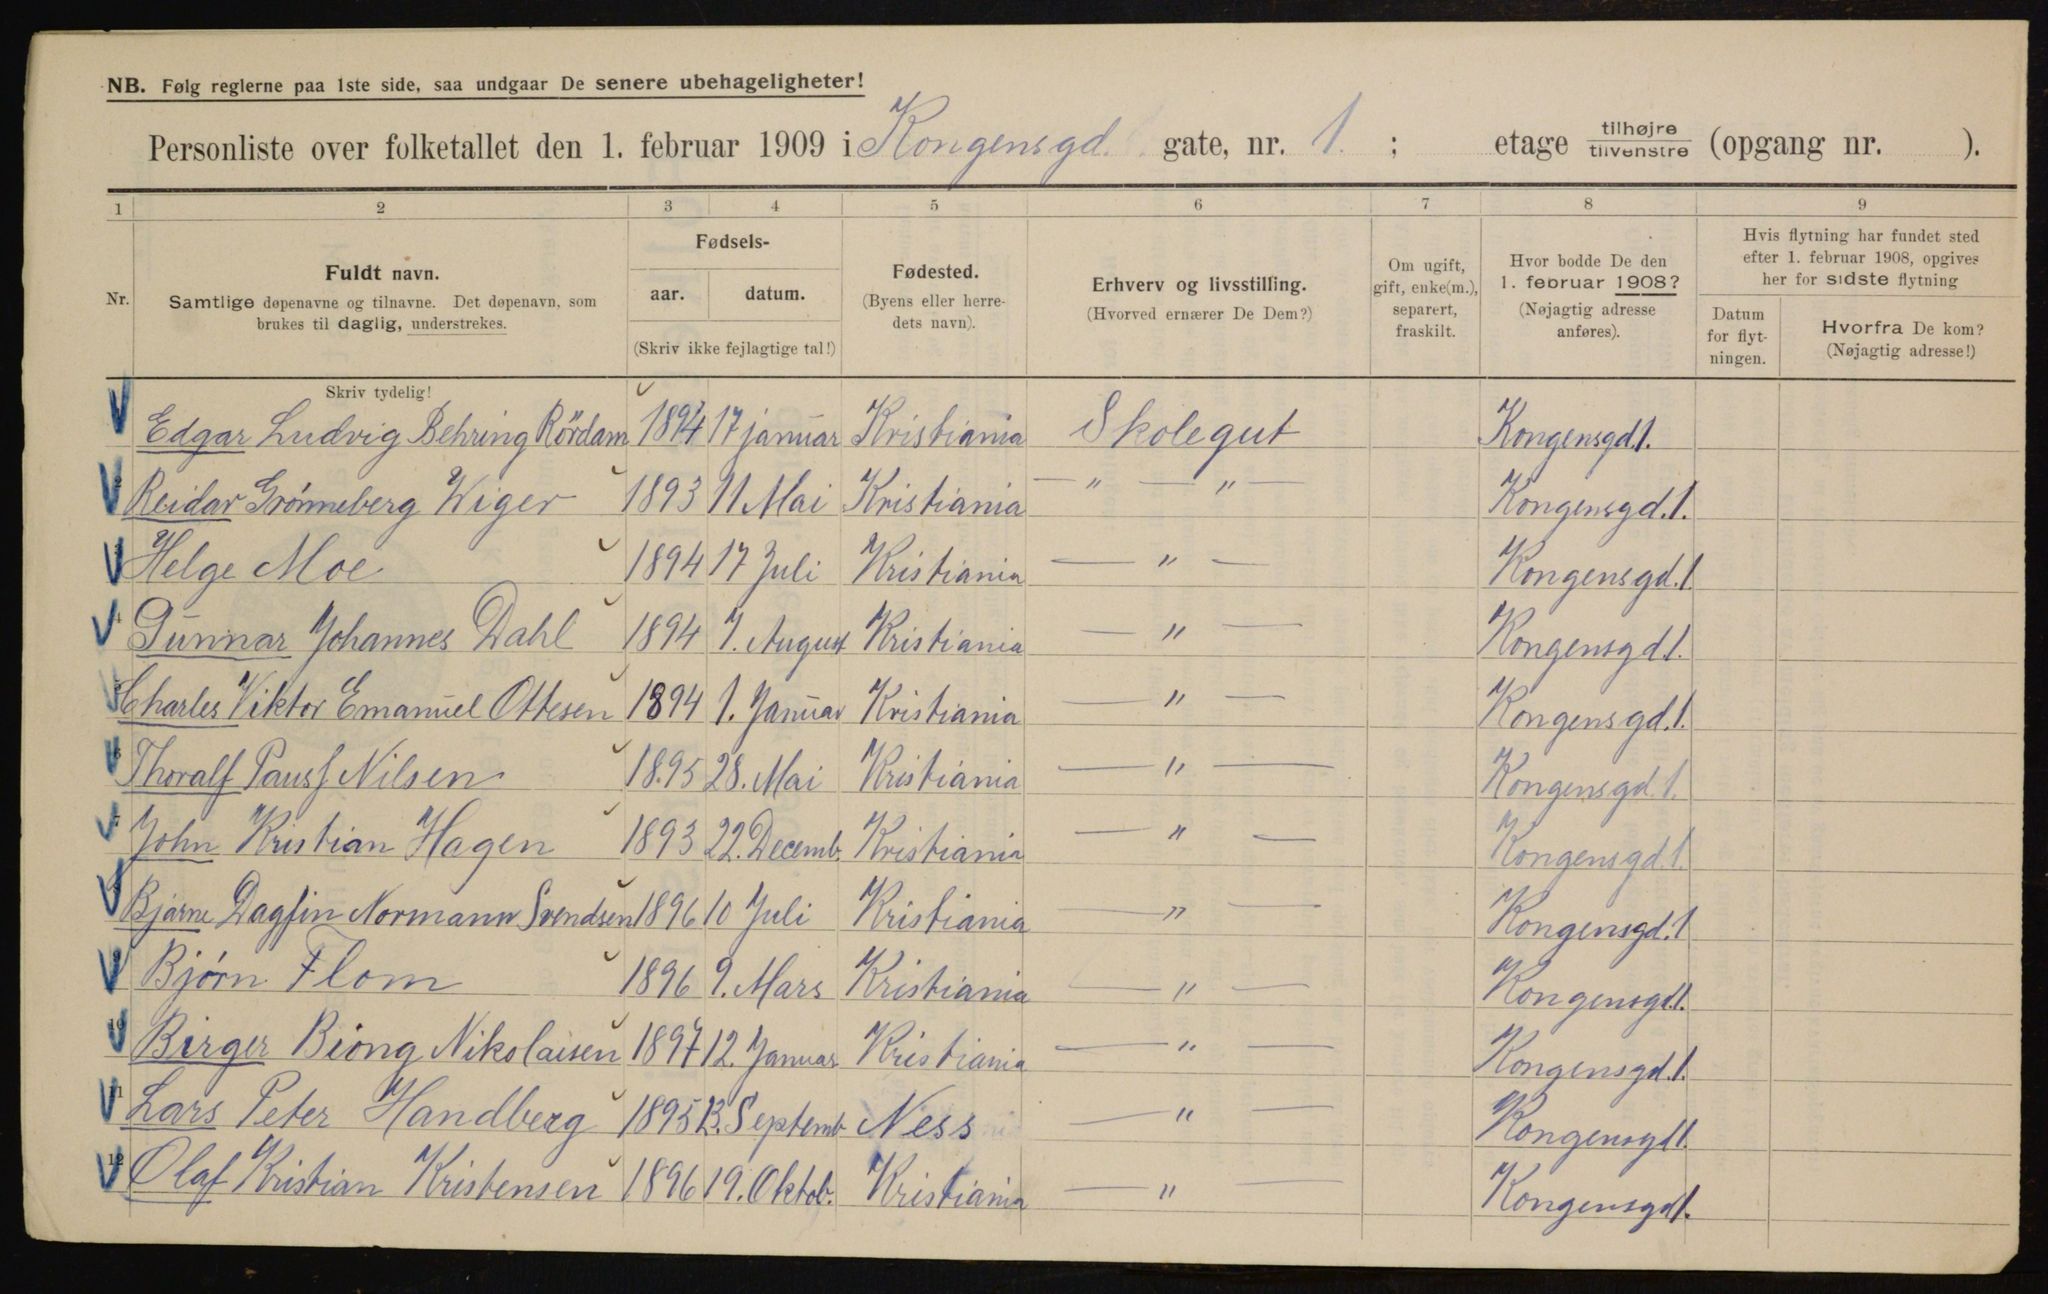 NB. Følg reglerne paa 1ste side, saa undgaar De senere ubehageligheter!
Personliste over folketallet den 1. februar 1909 i Kongensgd. gate, nr. 1. ; etage tilhøjre/tilvenstre (opgang nr. ).
1 2 3 4 5 6 7 8 9
Nr.
Fuldt navn.
Samtlige døpenavne og tilnavne. Det døpenavn, som
brukes til daglig, understrekes.
Skriv tydelig!
Fødsels-
aar. datum.
(Skriv ikke fejlagtige tal!)
Fødested.
(Byens eller herre-
dets navn).
Erhverv og livsstilling.
(Hvorved ernærer De Dem?)
Om ugift,
gift, enke(m.),
separert,
fraskilt.
Hvor bodde De den
1. februar 1908?
(Nøjagtig adresse
anføres).
Hvis flytning har fundet sted
efter 1. februar 1908, opgives
her for sidste flytning
Datum
for flyt-
ningen.
Hvorfra De kom?
(Nøjagtig adresse!)
Edgar Ludvig Behring Rördam 1894 17 januar Kristiania Skolegut Kongensgd.1.
2 Reidar Grönneberg Wiger 1893 11 Mai Kristiania — " — " — Kongensgd.1.
3 Helge Moe 1894 17 Juli Kristiania — " — Kongensgd.1
4 Gunnar Johannes Dahl 1894 7. August Kristiania — " — Kongensgd.1.
5 Charles Viktor Emanuel Ottesen 1894 1. Januar Kristiania — " — Kongensgd.1.
6 Thoralf Nilsen 1895 28. Mai Kristiania — " — Kongensgd.1.
7 John Kristian Hagen 1893 22. Decemb. Kristiania — " — Kongensgd.1.
8 Bjarne Dagfin Normann Svendsen 1896 10 Juli Kristiania — " — Kongensgd.1
9 Bjørn Flom 1896 9. Mars Kristiania — " — Kongensgd.1.
10 Birger Biong Nikolaisen 1897 12. Januar Kristiania — " — Kongensgd.1.
11 Lars Peter Handberg 1895 Septemb Ness — " — Kongensgd1.
12 Olaf Kristian Kristensen 1896 19. Oktob. Kristiania — " — Kongensgd1.